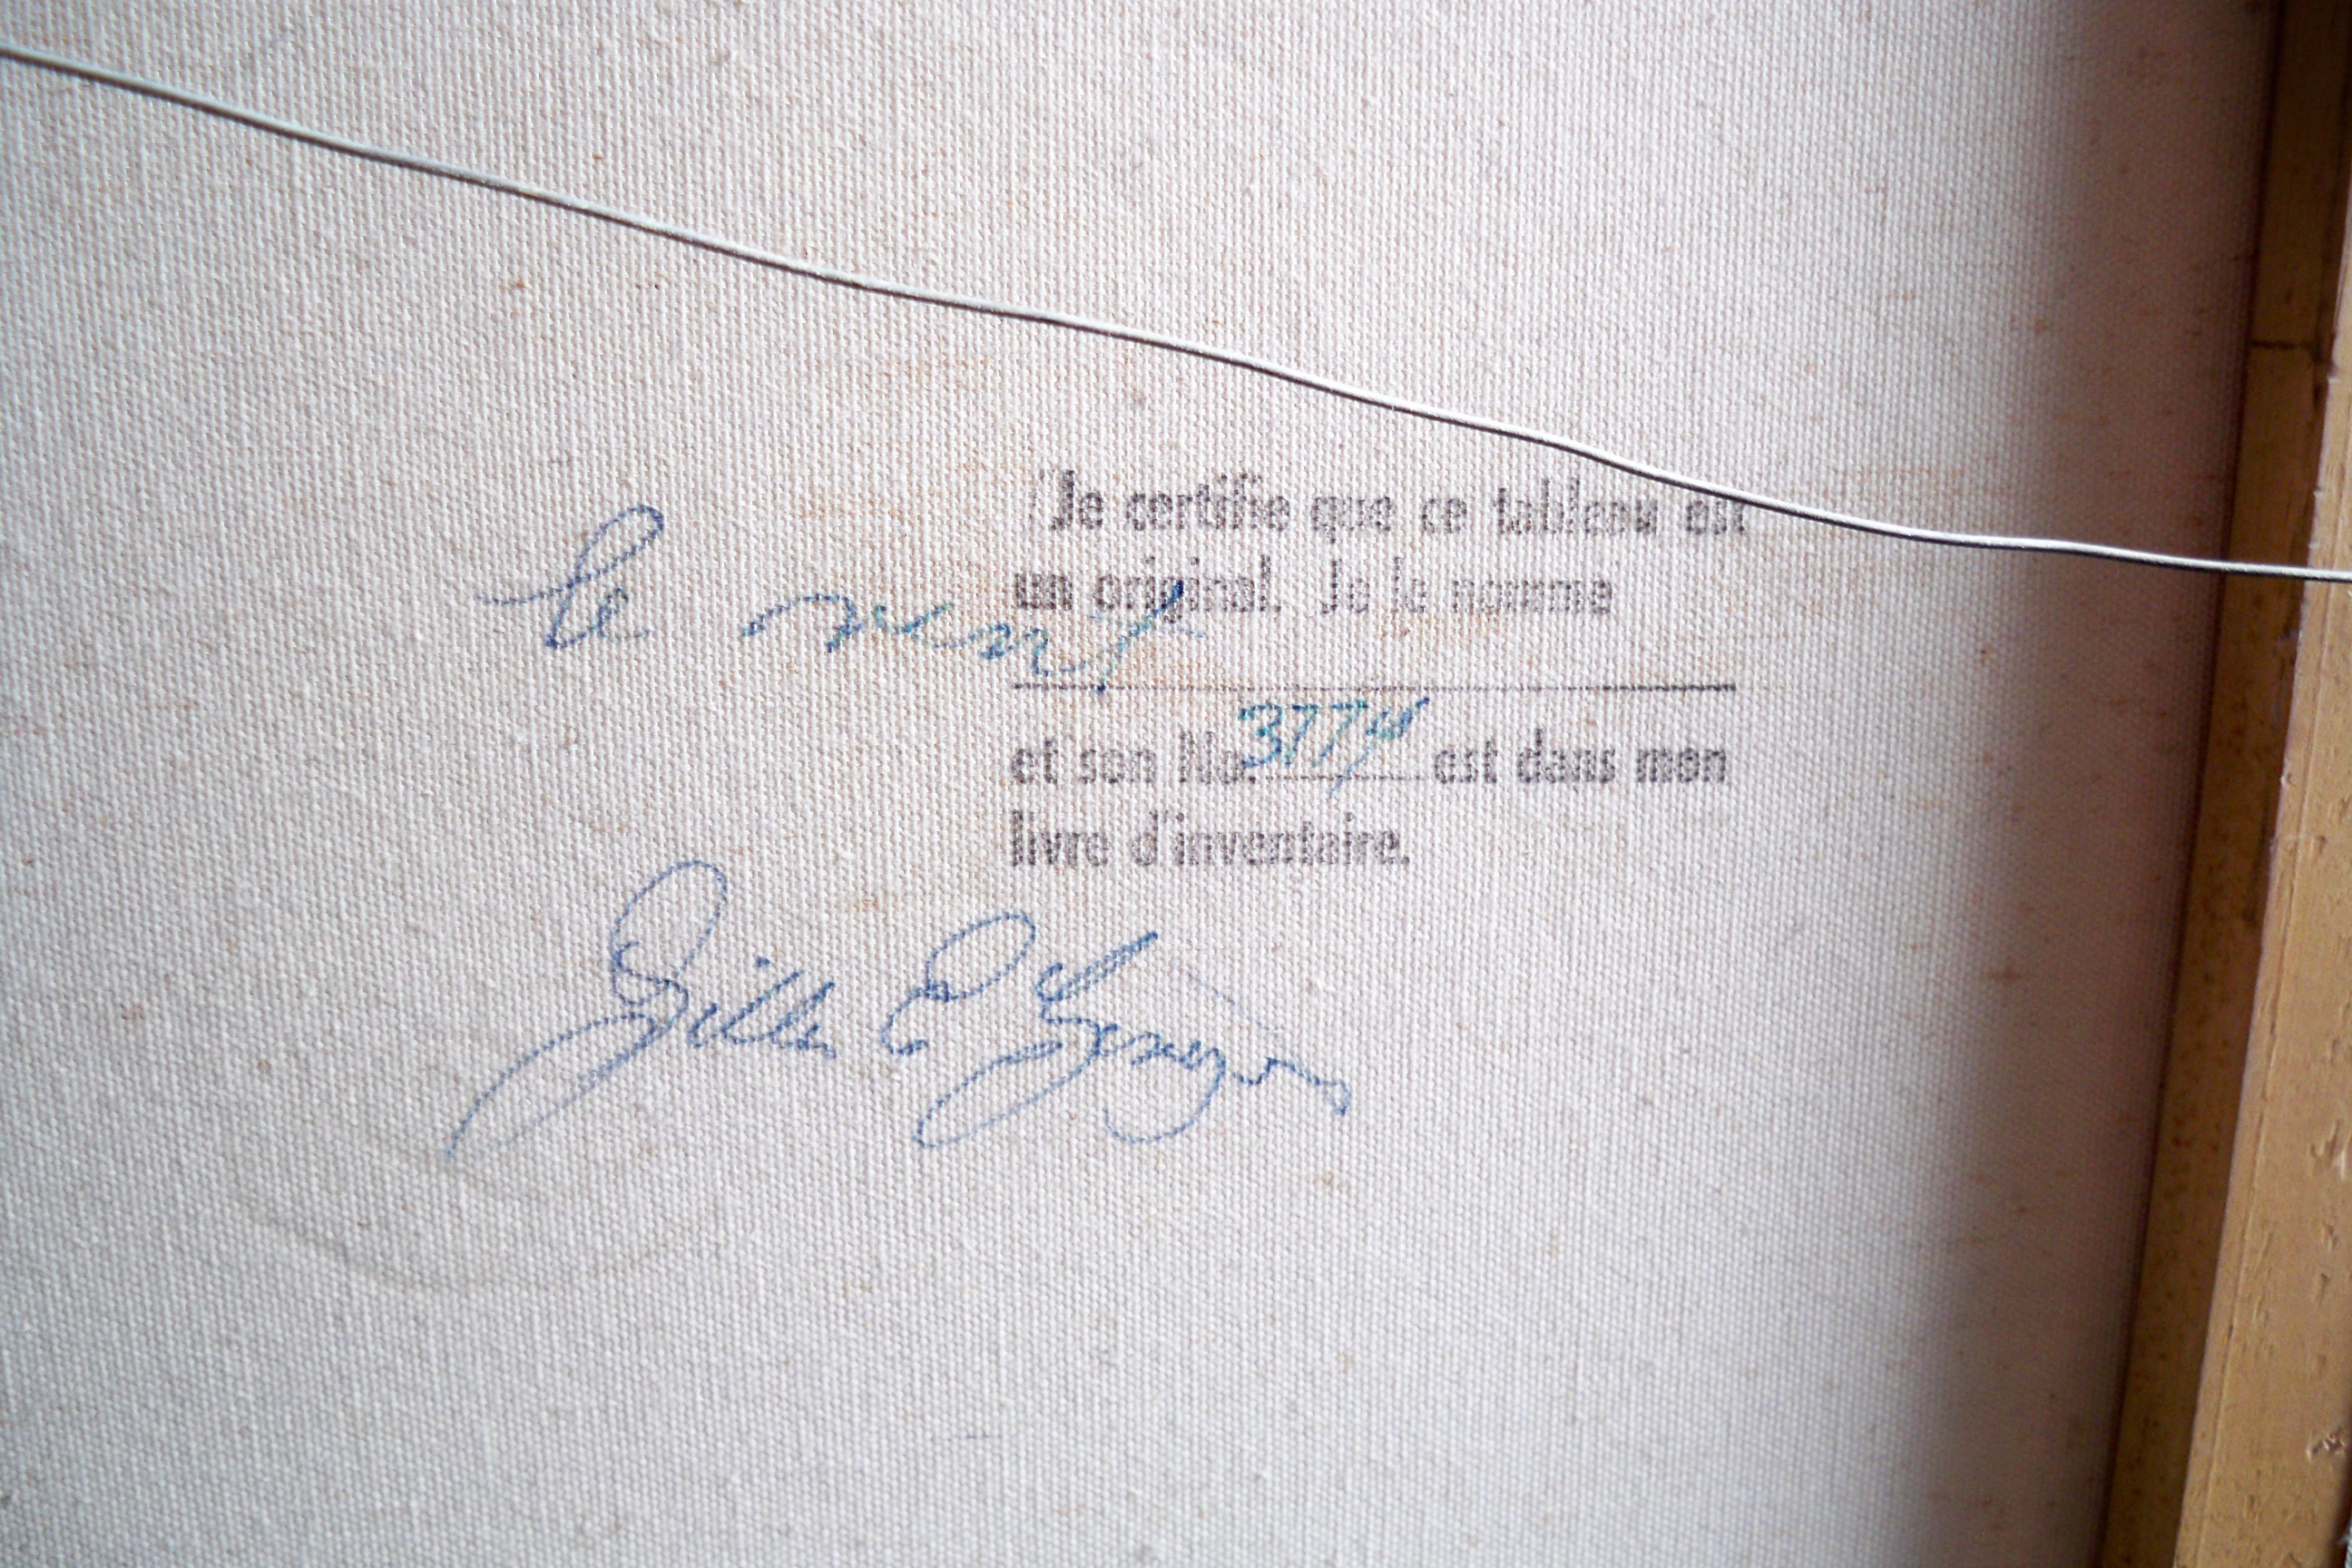 Je certifie que ce tableau est
un original. Je le nomme
le vent
et son No. 3774 est dans mon
livre d'inventaire.
Gilles E Gingras